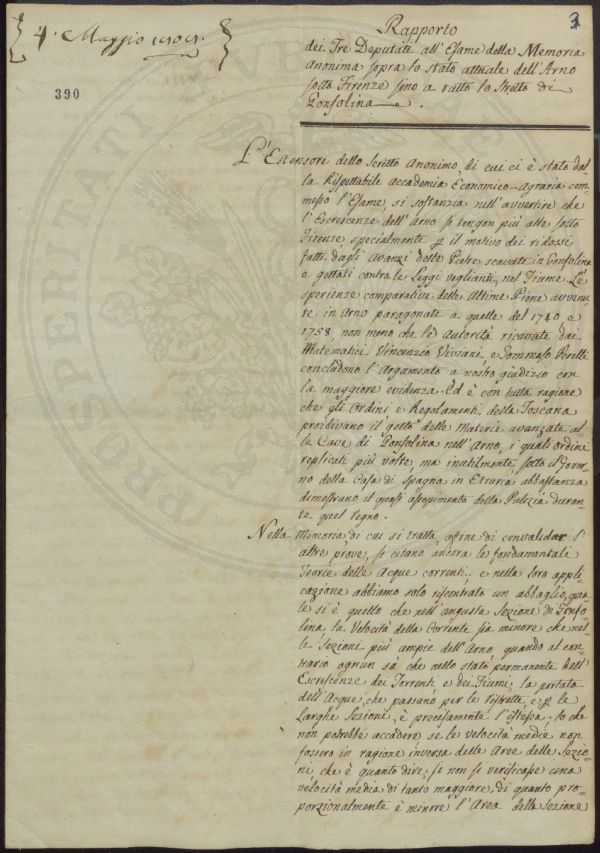 4. Maggio
3
390
Rapporto
dei Tre Deputati all'Esame della Memoria
Anonima sopra lo stato attuale dell'Arno
sotto Firenze sino a tutto lo Stretto di
Gonfolina.
L'Estensore dello Scritto Anonimo, di cui ci è stato dal-
la Rispettabile Accademia Economico-Agraria com-
messo l'Esame, si sostanzia nell'avvertire che
l'Escrescenze dell'Arno si tengon più alte sotto
Firenze, specialmente p il motivo dei ridossi
fatti dagli Avanzi delle Pietre scavate in Gonfolina
e gettati contro le Leggi veglianti, nel Fiume. L'e-
sperienze comparative delle Altime Piene avvenu-
te in Arno paragonate a quelle del 1740 e
1758, non meno che le autorità ricavate dai
Matematici Vincenzio Viviani, e Tommaso Perelli
concludono l'Argumento a nostro giudizio con
la maggiore evidenza. Ed è con tutta ragione
che gli Ordini, e Regolamenti della Toscana
proibivano il getto delle Materie avanzate al-
le Cave di Gonfolina nell'Arno, i quali ordini
replicati più volte, ma inutilmente, sotto il Gover-
no della Casa di Spagna in Etruria abbastanza
dimostrano il quasi assopimento della Pulizia duran-
te quel Regno.
Nella Memoria di cui si tratta, affine di convalidar l'
altre prove, si citano ancora le fondamentali
Teorie delle Acque correnti; e nella loro appli-
cazione abbiamo solo riscontrato un abbaglio, qua-
le si è quello che nell'angusta Sezione di Gonfo-
lina, la Velocità della Corrente sia minore che nel-
le Sezioni più ampie dell'Arno, quando al con-
trario ognun sà che nello stato permanente dell'
Escrescenze dei Torrenti, e dei Fiumi, la portata
dell'Acque, che passano per le ristrette, e p le
Larghe Sezioni, è precisamente l'istessa; lo che
non potrebbe accadere se le velocità medie non
fossero in ragione inversa delle Aree delle Sezio-
ni, che è quanto dire, se non si verificasse una
velocità media di tanto maggiore, di quanto pro-
porzionalmente è minore l'Area della Sezione